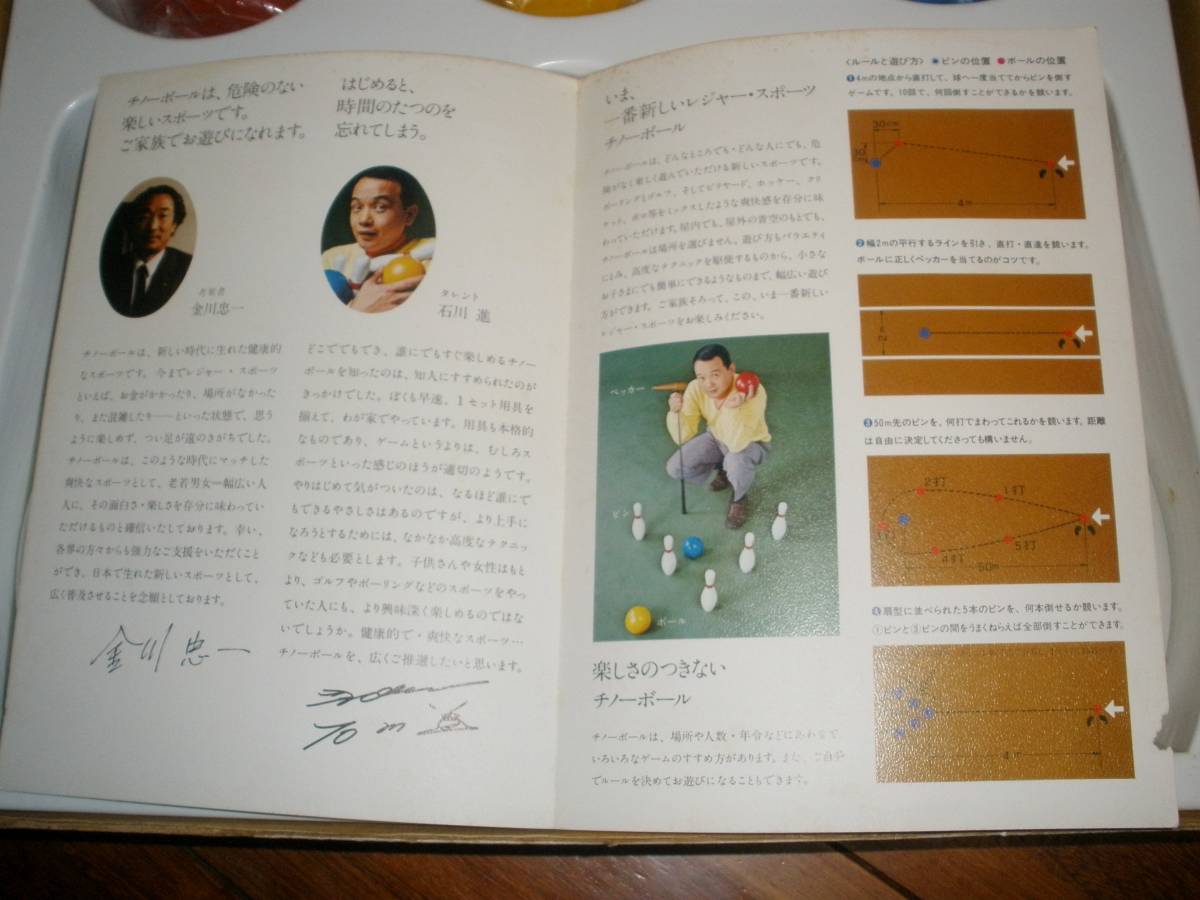 チノーボールは、危険のない
楽しいスポーツです。
ご家族でお遊びになれます。
考案者
金川忠一
チノーボールは、新しい時代に生れた健康的
なスポーツです。今までレジャー・スポーツ
といえば、お金がかかったり、場所がなかった
り、また混雑したり——といった状態で、思う
ように楽しめず、つい足が遠のきがちでした。
チノーボールは、このような時代にマッチした
爽快なスポーツとして、老若男女=幅広い人
人に、その面白さ・楽しさを存分に味わってい
ただけるものと確信いたしております。幸い、
各界の方々からも強力なご支援をいただくこと
ができ、日本で生れた新しいスポーツとして、
広く普及させることを念願としております。
金川忠一
はじめると、
時間のたつのを
忘れてしまう。
タレント
石川 進
どこででもでき、誰にでもすぐ楽しめるチノー
ボールを知ったのは、知人にすすめられたのが
きっかけでした。ぼくも早速、1セット用具を
揃えて、わが家でやっています。用具も本格的
なものであり、ゲームというよりは、むしろス
ポーツといった感じのほうが適切のようです。
やりはじめて気がついたのは、なるほど誰にで
もできるやさしさはあるのですが、より上手に
なろうとするためには、なかなか高度なテクニッ
クなども必要とします。子供さんや女性はもと
より、ゴルフやボーリングなどのスポーツをやっ
ていた人にも、より興味深く楽しめるのではな
いでしょうか。健康的で・爽快なスポーツ…
チノーボールを、広くご推選したいと思います。
いま、
一番新しいレジャー・スポーツ
チノーボール
チノーボールは、どんなところでも・どんな人にでも、危
険がなく楽しく遊んでいただける新しいスポーツです。
ボーリングとゴルフ、そしてビリヤード、ホッケー、クリ
ケット、ポロ等をミックスしたような爽快感を存分に味
わっていただけます。屋内でも、屋外の青空のもとでも、
チノーボールは場所を選びません。遊び方もバラエティ
にとみ、高度なテクニックを駆使するものから、小さな
お子さまにでも簡単にできるようなものまで、幅広い遊び
方ができます。ご家族そろって、この、いま一番新しい
レジャー・スポーツをお楽しみください。
ペッカー
ピン
ボール
楽しさのつきない
チノーボール
チノーボールは、場所や人数・年令などにあわせて、
いろいろなゲームのすすめ方があります。また、ご自分
でルールを決めてお遊びになることもできます。
〈ルールと遊び方〉 ●ピンの位置 ●ボールの位置
❶4mの地点から直打して、球へ一度当ててからピンを倒す
ゲームです。10回で、何回倒すことができるかを競います。
30cm
30cm
4m
❷幅2mの平行するラインを引き、直打・直進を競います。
ボールに正しくペッカーを当てるのがコツです。
2m
❸50m先のピンを、何打でまわってこれるかを競います。距離
は自由に決定してくださっても構いません。
2打
1打
3打
4打
5打
50m
❹扇型に並べられた5本のピンを、何本倒せるか競います。
①ピンと③ピンの間をうまくねらえば全部倒すことができます。
4m